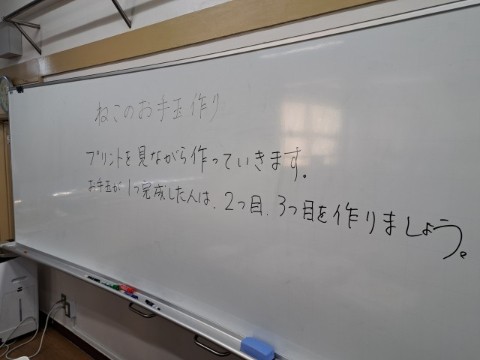 ねこのお手玉作り
プリントを見ながら作っていきます。
お手玉が1つ完成した人は、2つ目、3つ目を作りましょう。